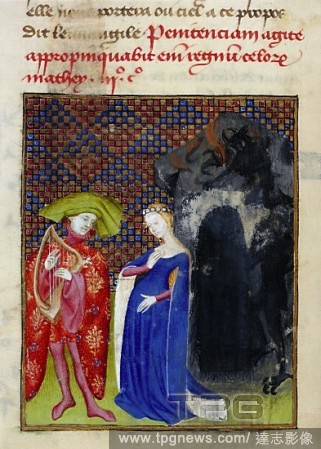 elle portera ou ciel a ce propos
dit le euvangile Penitenciam agite
appropinquabit enim regnum celorum
mathey. iij. c°
TPG
www.tpgnews.com / 達志影像